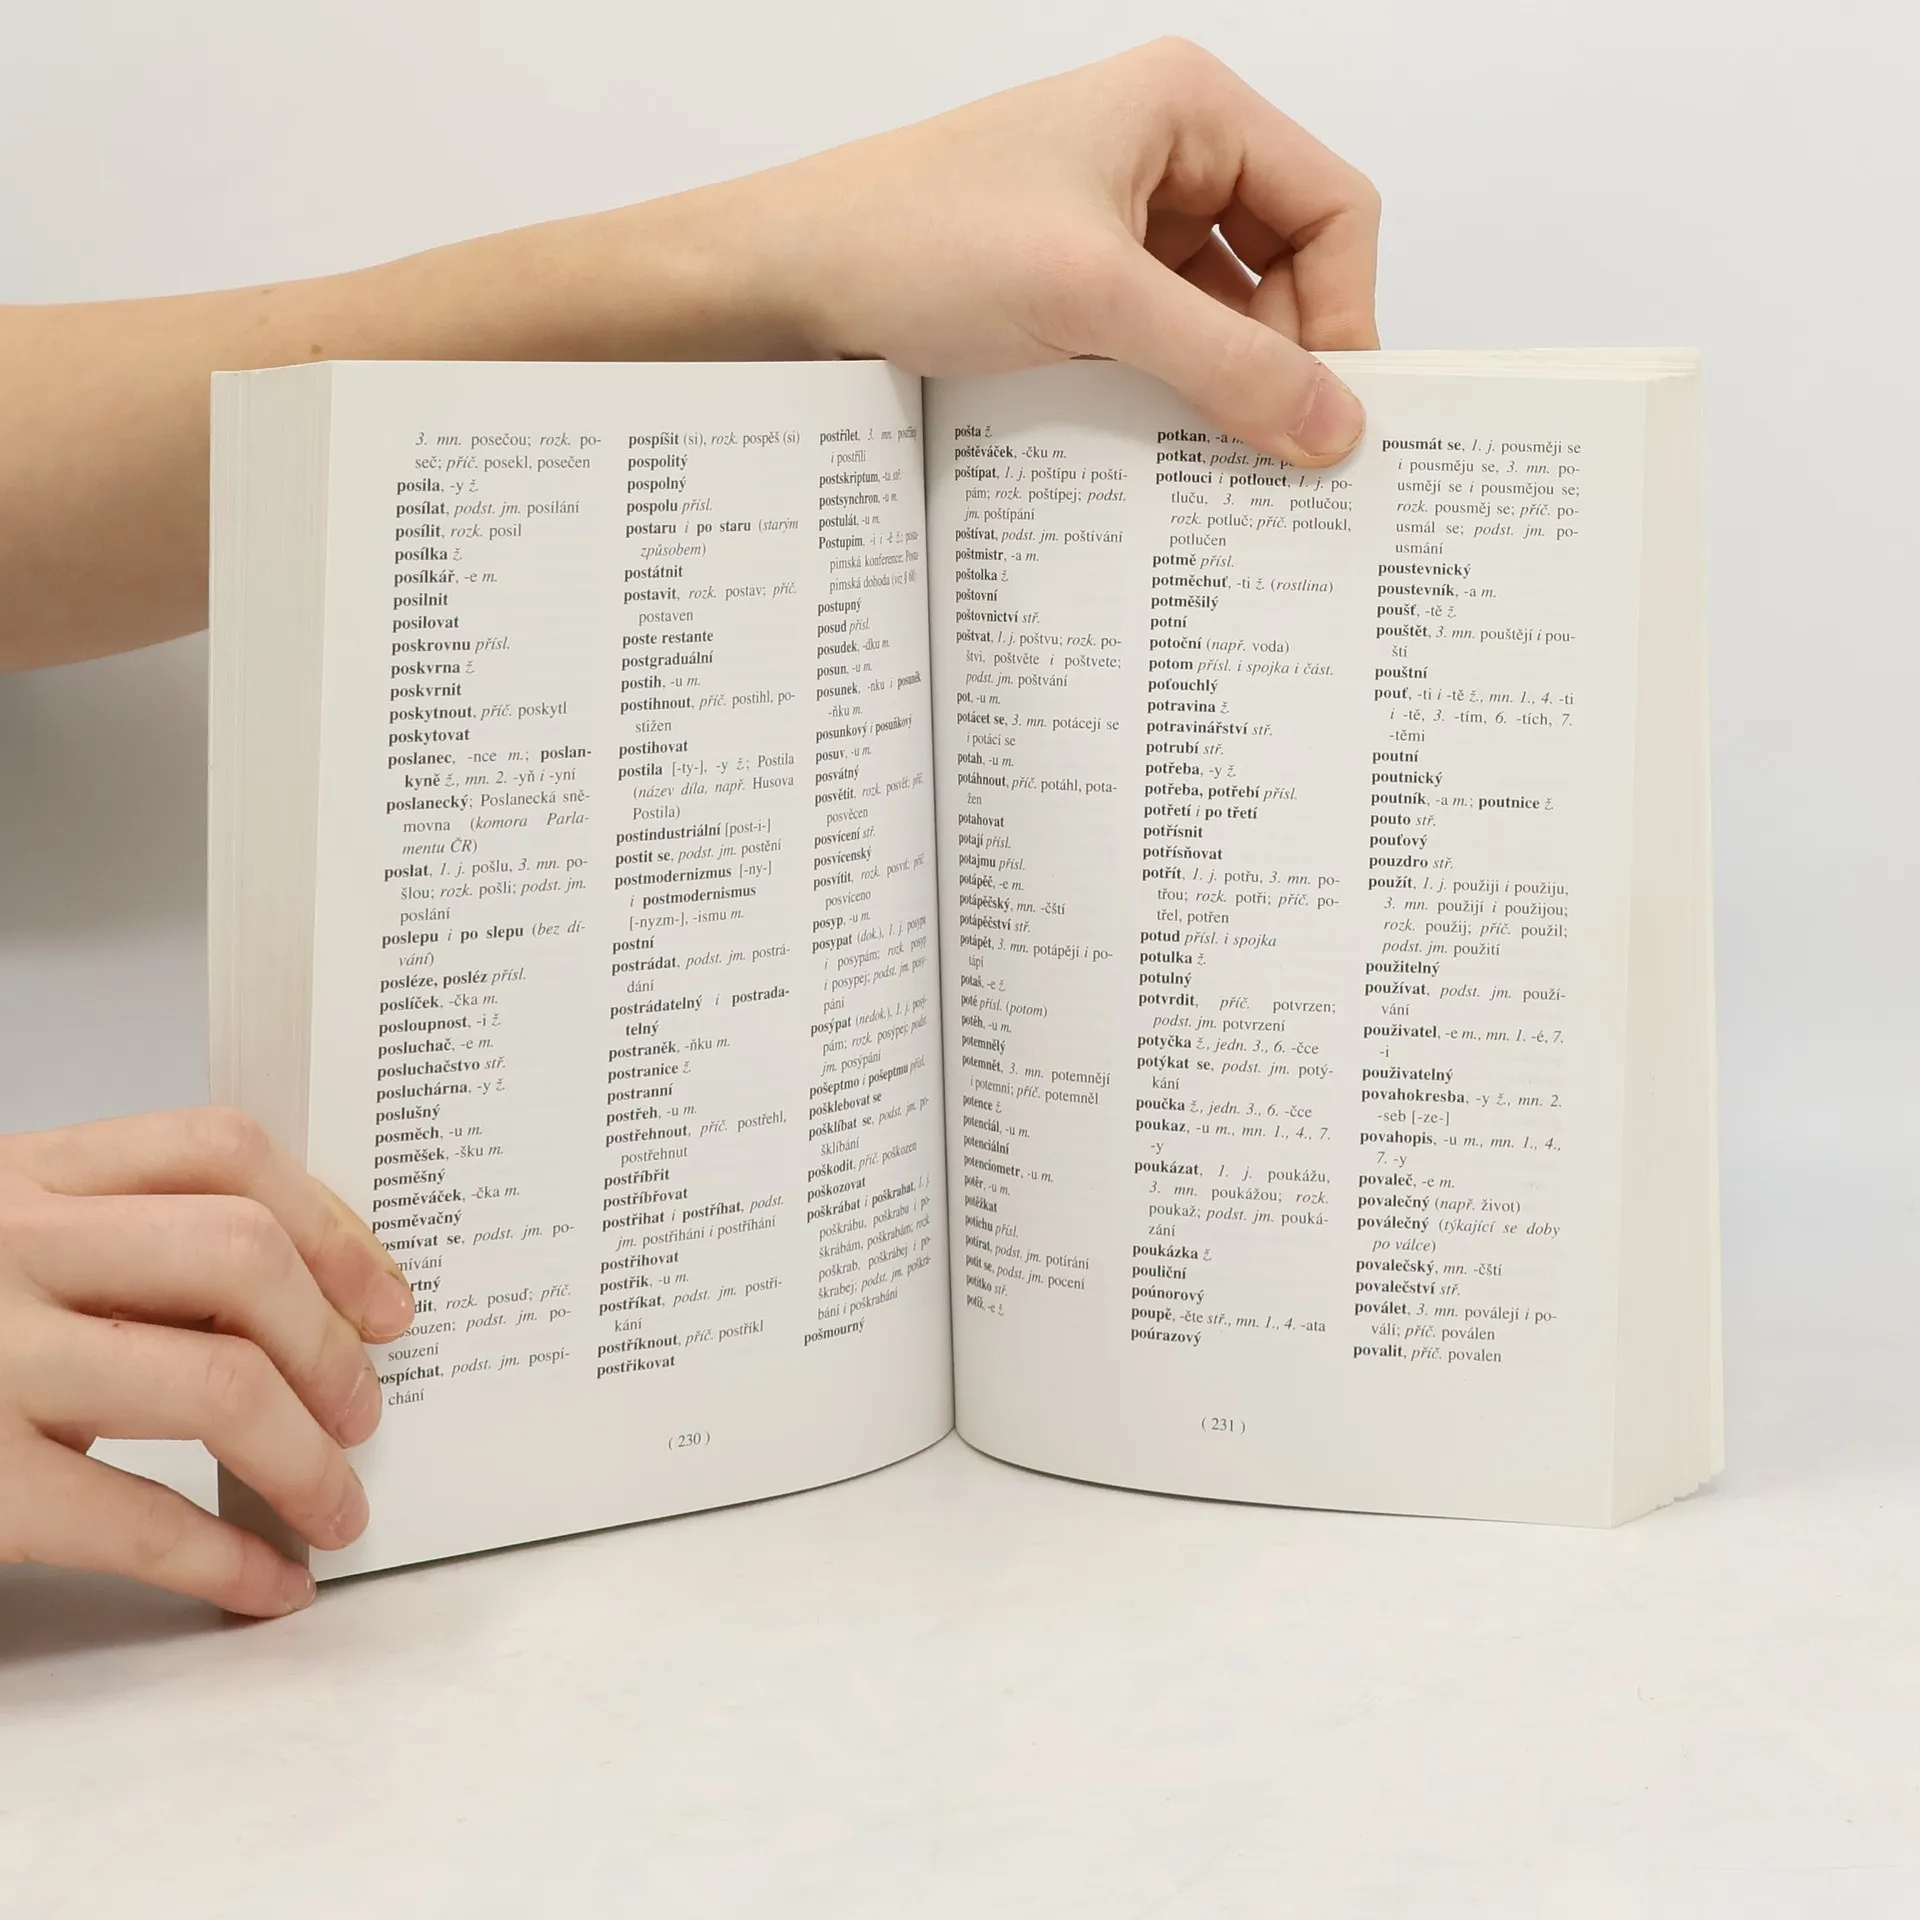 3. mn. posečou; rozk. po-
seč; příč. posekl, posečen
posila, -y ž.
posílat, podst. jm. posílání
posílit, rozk. posil
posílka ž.
posílkář, -e m.
posilnit
posilovat
poskrovnu přísl.
poskvrna ž.
poskvrnit
poskytnout, příč. poskytl
poskytovat
poslanec, -nce m.; poslan-
kyně ž., mn. 2. -yň i -yní
poslanecký; Poslanecká sně-
movna (komora Parla-
mentu ČR)
poslat, 1. j. pošlu, 3. mn. po-
šlou; rozk. pošli; podst. jm.
poslání
poslepu i po slepu (bez dí-
vání)
posléze, posléz přísl.
poslíček, -čka m.
posloupnost, -i ž.
posluchač, -e m.
posluchačstvo stř.
posluchárna, -y ž.
poslušný
posměch, -u m.
posměšek, -šku m.
posměšný
posměváček, -čka m.
posměvačný
osmívat se, podst. jm. po-
mívání
rtný
dit, rozk. posuď; příč.
souzen; podst. jm. po-
souzení
ospíchat, podst. jm. pospí-
chání
pospíšit (si), rozk. pospěš (si)
pospolitý
pospolný
pospolu přísl.
postaru i po staru (starým
způsobem)
postátnit
postavit, rozk. postav; příč.
postaven
poste restante
postgraduální
postih, -u m.
postihnout, příč. postihl, po-
stižen
postihovat
postila [-ty-], -y ž.; Postila
(název díla, např. Husova
Postila)
postindustriální [post-i-]
postit se, podst. jm. postění
postmodernizmus [-ny-]
i postmodernismus
[-nyzm-], -ismu m.
postní
postrádat, podst. jm. postrá-
dání
postrádatelný i postrada-
telný
postraněk, -ňku m.
postranice ž.
postranní
postřeh, -u m.
postřehnout, příč. postřehl,
postřehnut
postříbřit
postříbřovat
postříhat i postříhat, podst.
jm. postříhání i postříhání
postřihovat
postřik, -u m.
postříkat, podst. jm. postří-
kání
postříknout, příč. postříkl
postřikovat
postřílet, 3. mn. postřílejí
i postřílí
postskriptum, -ta stř.
postsynchron, -u m.
postulát, -u m.
Postupim, -i i -ě ž.; postu-
pimská konference; Postu-
pimská dohoda (viz § 60)
postupný
posud přísl.
posudek, -dku m.
posun, -u m.
posunek, -nku i posuněk,
-ňku m.
posunkový i posuňkový
posuv, -u m.
posvátný
posvětit, rozk. posvěť; příč.
posvěcen
posvícení stř.
posvícenský
posvítit, rozk. posviť; příč.
posvíceno
posyp, -u m.
posypat (dok.), 1. j. posypu
i posypám; rozk. posyp
i posypej; podst. jm. posy-
pání
posýpat (nedok.), 1. j. posý-
pám; rozk. posýpej; podst.
jm. posýpání
pošeptmo i pošeptmu přísl.
pošklebovat se
pošklíbat se, podst. jm. po-
šklíbání
poškodit, příč. poškozen
poškozovat
poškrábat i poškrabat, 1. j.
poškrábu, poškrabu i po-
škrábám, poškrabám; rozk.
poškrab, poškrábej i po-
škrabej; podst. jm. poškrá-
bání i poškrabání
pošmourný
( 230 )
pošta ž.
poštěváček, -čku m.
poštípat, 1. j. poštípu i poští-
pám; rozk. poštípej; podst.
jm. poštípání
poštívat, podst. jm. poštívání
poštmistr, -a m.
poštolka ž.
poštovní
poštovnictví stř.
poštvat, 1. j. poštvu; rozk. po-
štvi, poštvěte i poštvete;
podst. jm. poštvání
pot, -u m.
potácet se, 3. mn. potácejí se
i potácí se
potah, -u m.
potáhnout, příč. potáhl, pota-
žen
potahovat
potají přísl.
potajmu přísl.
potápěč, -e m.
potápěčský, mn. -čští
potápěčství stř.
potápět, 3. mn. potápějí i po-
tápí
potaš, -e ž.
poté přísl. (potom)
potěh, -u m.
potemnělý
potemnět, 3. mn. potemnějí
i potemní; příč. potemněl
potence ž.
potenciál, -u m.
potenciální
potenciometr, -u m.
potěr, -u m.
potěžkat
potichu přísl.
potírat, podst. jm. potírání
potit se, podst. jm. pocení
potítko stř.
potíž, -e ž.
potkan, -a
potkat, podst. jm.
potlouci i potlouct, 1. j. po-
tluču, 3. mn. potlučou;
rozk. potluč; příč. potloukl,
potlučen
potmě přísl.
potměchuť, -ti ž. (rostlina)
potměšilý
potní
potoční (např. voda)
potom přísl. i spojka i část.
poťouchlý
potravina ž.
potravinářství stř.
potrubí stř.
potřeba, -y ž.
potřeba, potřebí přísl.
potřetí i po třetí
potřísnit
potřísňovat
potřít, 1. j. potřu, 3. mn. po-
třou; rozk. potři; příč. po-
třel, potřen
potud přísl. i spojka
potulka ž.
potulný
potvrdit, příč. potvrzen;
podst. jm. potvrzení
potyčka ž., jedn. 3., 6. -čce
potýkat se, podst. jm. potý-
kání
poučka ž., jedn. 3., 6. -čce
poukaz, -u m., mn. 1., 4., 7.
-y
poukázat, 1. j. poukážu,
3. mn. poukážou; rozk.
poukaž; podst. jm. pouká-
zání
poukázka ž.
pouliční
poúnorový
poupě, -ěte stř., mn. 1., 4. -ata
poúrazový
pousmát se, 1. j. pousměji se
i pousměju se, 3. mn. po-
usmějí se i pousmějou se;
rozk. pousměj se; příč. po-
usmál se; podst. jm. po-
usmání
poustevnický
poustevník, -a m.
poušť, -tě ž.
pouštět, 3. mn. pouštějí i pou-
ští
pouštní
pouť, -ti i -tě ž., mn. 1., 4. -ti
i -tě, 3. -tím, 6. -tích, 7.
-těmi
poutní
poutnický
poutník, -a m.; poutnice ž.
pouto stř.
pouťový
pouzdro stř.
použít, 1. j. použiji i použiju,
3. mn. použijí i použijou;
rozk. použij; příč. použil;
podst. jm. použití
použitelný
používat, podst. jm. použí-
vání
použivatel, -e m., mn. 1. -é, 7.
-i
použivatelný
povahokresba, -y ž., mn. 2.
-seb [-ze-]
povahopis, -u m., mn. 1., 4.,
7. -y
povaleč, -e m.
povalečný (např. život)
poválečný (týkající se doby
po válce)
povalečský, mn. -čští
povalečství stř.
poválet, 3. mn. poválejí i po-
válí; příč. poválen
povalit, příč. povalen
( 231 )